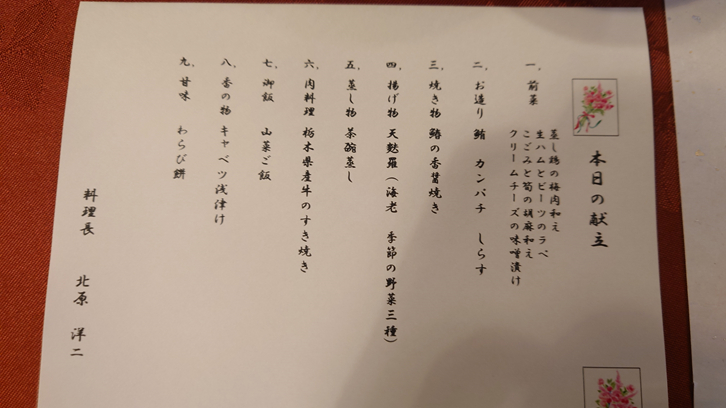 本日の献立
一、前菜 蒸し鶏の梅肉和え
生ハムとビーツのラペ
こごみと筍の胡麻和え
クリームチーズの味噌漬け
二、お造り 鮪 カンパチ しらす
三、焼き物 鰆の香醤焼き
四、揚げ物 天麩羅(海老 季節の野菜三種)
五、蒸し物 茶碗蒸し
六、肉料理 栃木県産牛のすき焼き
七、御飯 山菜ご飯
八、香の物 キャベツ浅漬け
九、甘味 わらび餅
料理長 北原 洋二